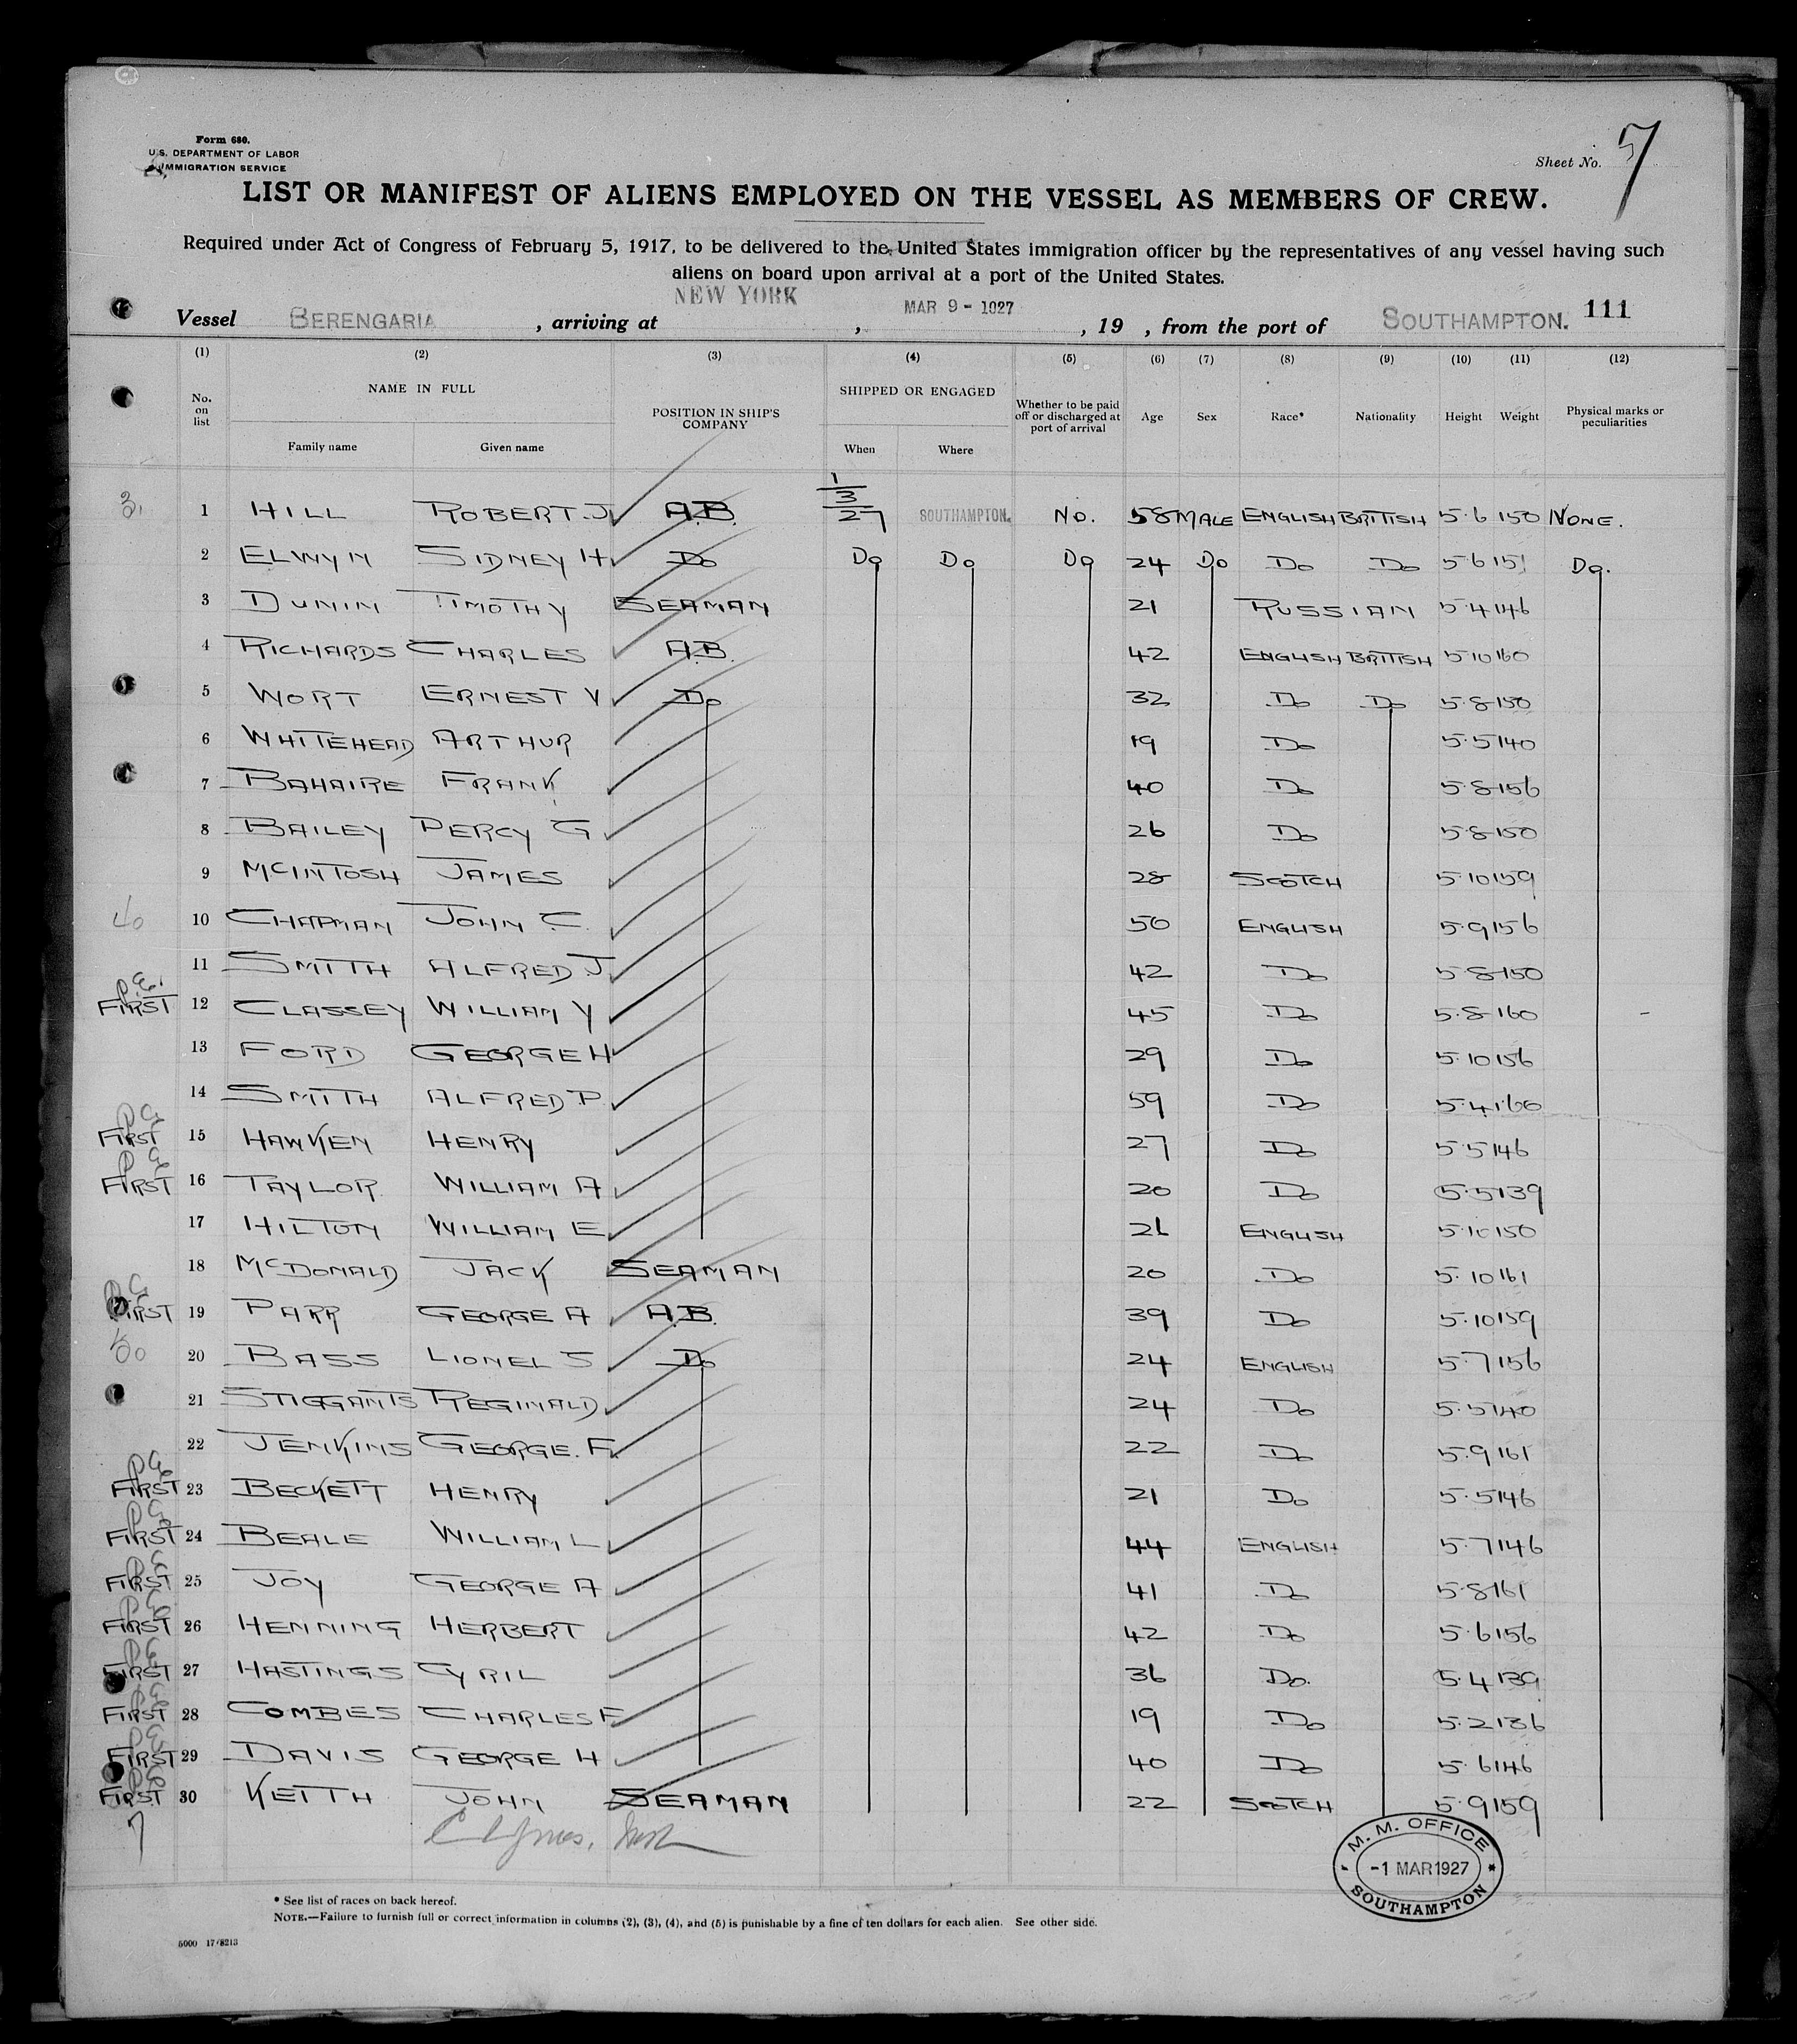 Form 680.
U.S. DEPARTMENT OF LABOR
IMMIGRATION SERVICE
Sheet No. 7
LIST OR MANIFEST OF ALIENS EMPLOYED ON THE VESSEL AS MEMBERS OF CREW.
Required under Act of Congress of February 5, 1917, to be delivered to the United States immigration officer by the representatives of any vessel having such
aliens on board upon arrival at a port of the United States.
Vessel BERENGARIA, arriving at NEW YORK, MAR 9 - 1927, 19 , from the port of SOUTHAMPTON. 111
(1) (2) (3) (4) (5) (6) (7) (8) (9) (10) (11) (12)
No. on list NAME IN FULL Family name Given name POSITION IN SHIP'S COMPANY SHIPPED OR ENGAGED When Where Whether to be paid off or discharged at port of arrival Age Sex Race* Nationality Height Weight Physical marks or peculiarities
1 HILL ROBERT.J A.B. 1/3/27 SOUTHAMPTON. No. 58 MALE ENGLISH BRITISH 5.6 150 NONE.
2 ELWYN SIDNEY H Do Do Do Do 24 Do Do Do 5.6 151 Do.
3 DUNIN TIMOTHY SEAMAN 21 RUSSIAN 5.4 146
4 RICHARDS CHARLES A.B. 42 ENGLISH BRITISH 5.10 160
5 WORT ERNEST V Do 32 Do Do 5.8 150
6 WHITEHEAD ARTHUR 19 Do 5.5 140
7 BAHAIRE FRANK 40 Do 5.8 156
8 BAILEY PERCY G 26 Do 5.8 150
9 McINTOSH JAMES 28 SCOTCH 5.10 159
10 CHAPMAN JOHN C. 50 ENGLISH 5.9 156
11 SMITH ALFRED J 42 Do 5.8 150
FIRST 12 CLASSEY WILLIAM Y 45 Do 5.8 160
13 FORD GEORGE H 29 Do 5.10 156
14 SMITH ALFRED P. 59 Do 5.4 160
FIRST 15 HAWKEN HENRY 27 Do 5.5 146
FIRST 16 TAYLOR WILLIAM A 20 Do 5.5 139
17 HILTON WILLIAM E 26 ENGLISH 5.10 150
18 McDONALD JACK SEAMAN 20 Do 5.10 161
FIRST 19 PARR GEORGE A A.B. 39 Do 5.10 159
20 BASS LIONEL S Do 24 ENGLISH 5.7 156
21 STIGGANTS REGINALD 24 Do 5.5 140
22 JENKINS GEORGE.F. 22 Do 5.9 161
FIRST 23 BECKETT HENRY 21 Do 5.5 146
FIRST 24 BEALE WILLIAM L 44 ENGLISH 5.7 146
FIRST 25 JOY GEORGE A 41 Do 5.8 161
FIRST 26 HENNING HERBERT 42 Do 5.6 156
FIRST 27 HASTINGS CYRIL 36 Do. 5.4 139
FIRST 28 COMBES CHARLES F 19 Do 5.2 136
FIRST 29 DAVIS GEORGE H 40 Do 5.6 146
FIRST 30 KEITH JOHN SEAMAN 22 SCOTCH 5.9 159
7
M. M. OFFICE
-1 MAR 1927
SOUTHAMPTON
* See list of races on back hereof.
NOTE.—Failure to furnish full or correct information in columns (2), (3), (4), and (5) is punishable by a fine of ten dollars for each alien. See other side.
5000 17/8213